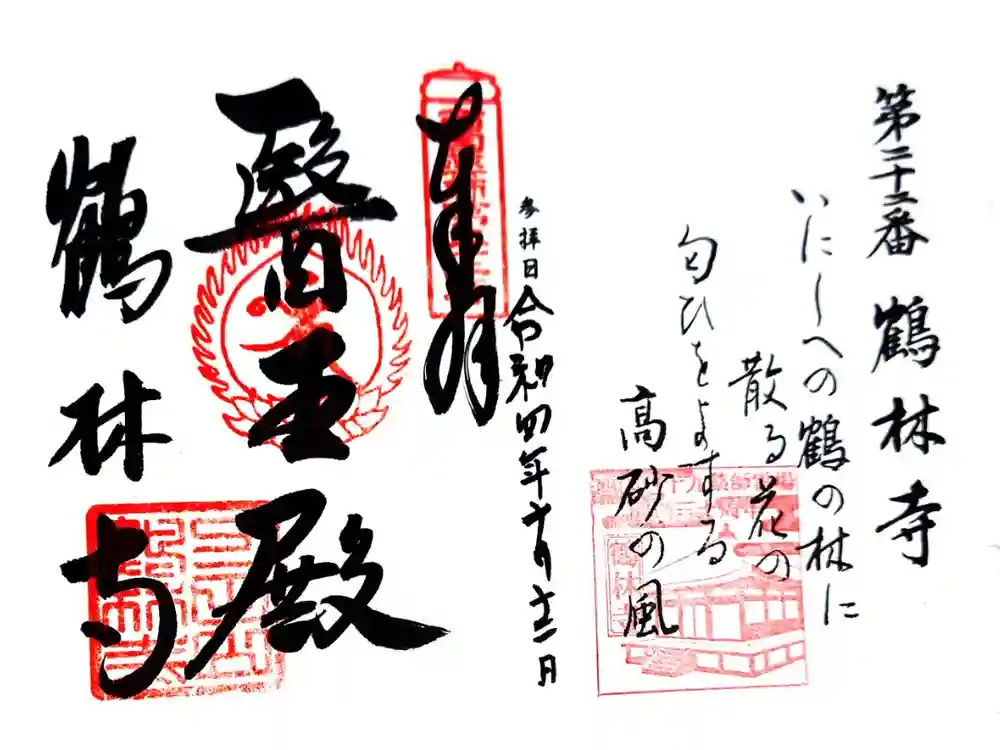 第二十二番 鶴林寺
いにしへの鶴の林に
散る花の
匂ひをよする
高砂の風
鶴林寺
参拝日 令和四年十月十二日
奉拝
醫王殿
鶴林寺